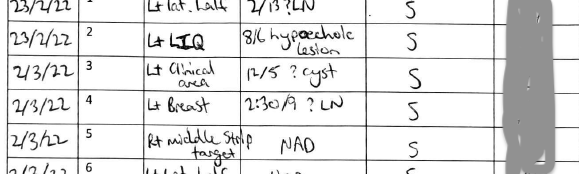 23/2/22 1 Lt lat. half 2/13 ? LN S
23/2/22 2 Lt LIQ 8/6 hypoechoic lesion S
2/3/22 3 Lt Clinical area 12/5 ? cyst S
2/3/22 4 Lt Breast 2:30/9 ? LN S
2/3/22 5 Rt middle strip target NAD S
2/3/22 6 Lt Lat. half